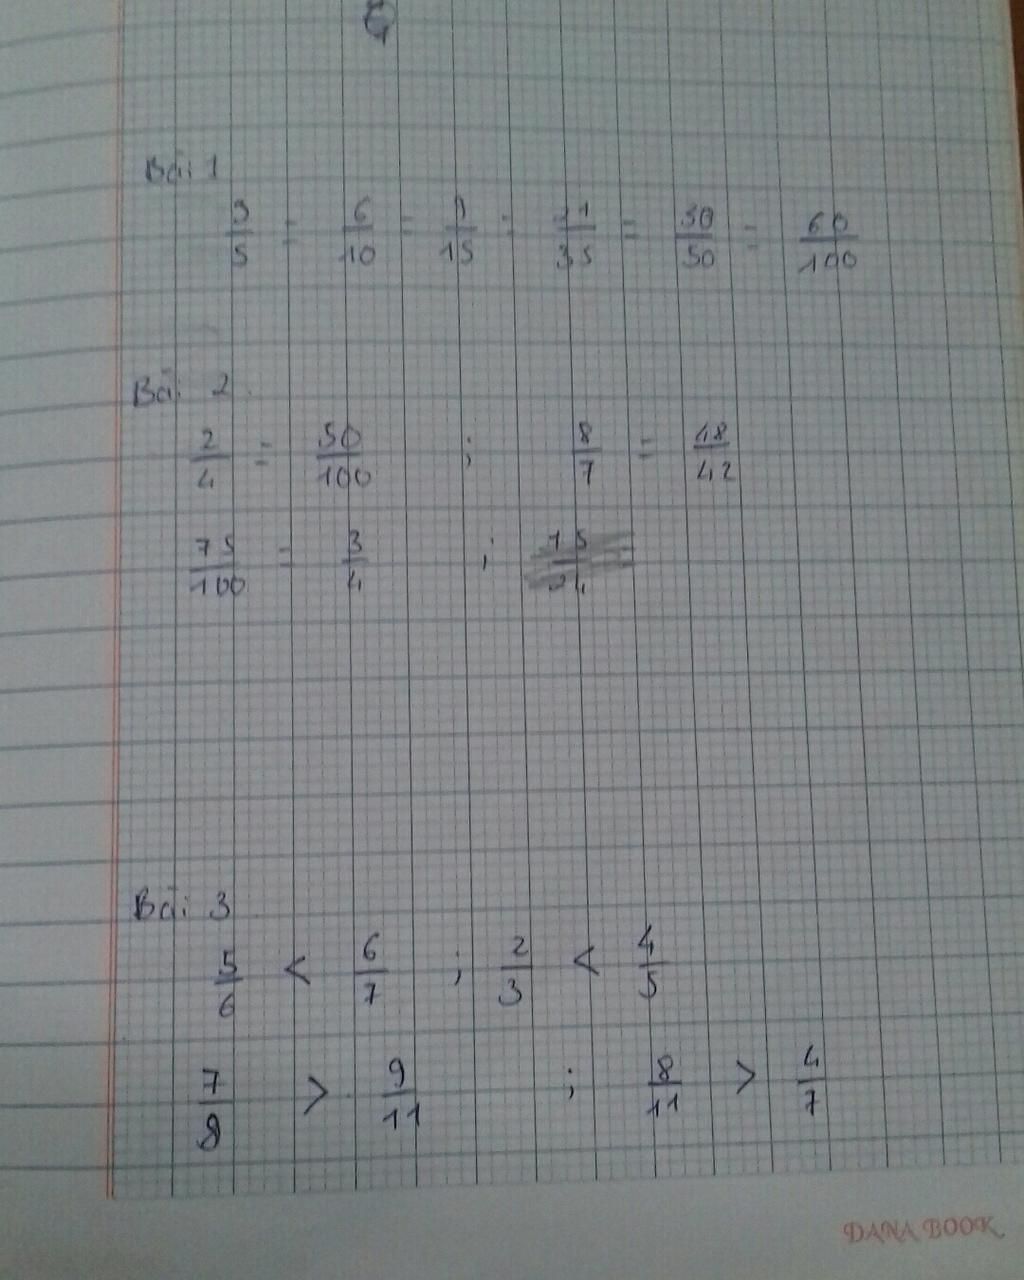 Bài 1
3/5 = 6/10 = 9/15 = 21/35 = 30/50 = 60/100
Bài 2
2/4 = 50/100 ; 8/7 = 48/42
75/100 = 3/4 ;
Bài 3
5/6 < 6/7 ; 2/3 < 4/5
7/8 > 9/11 ; 8/11 > 4/7
DANA BOOK